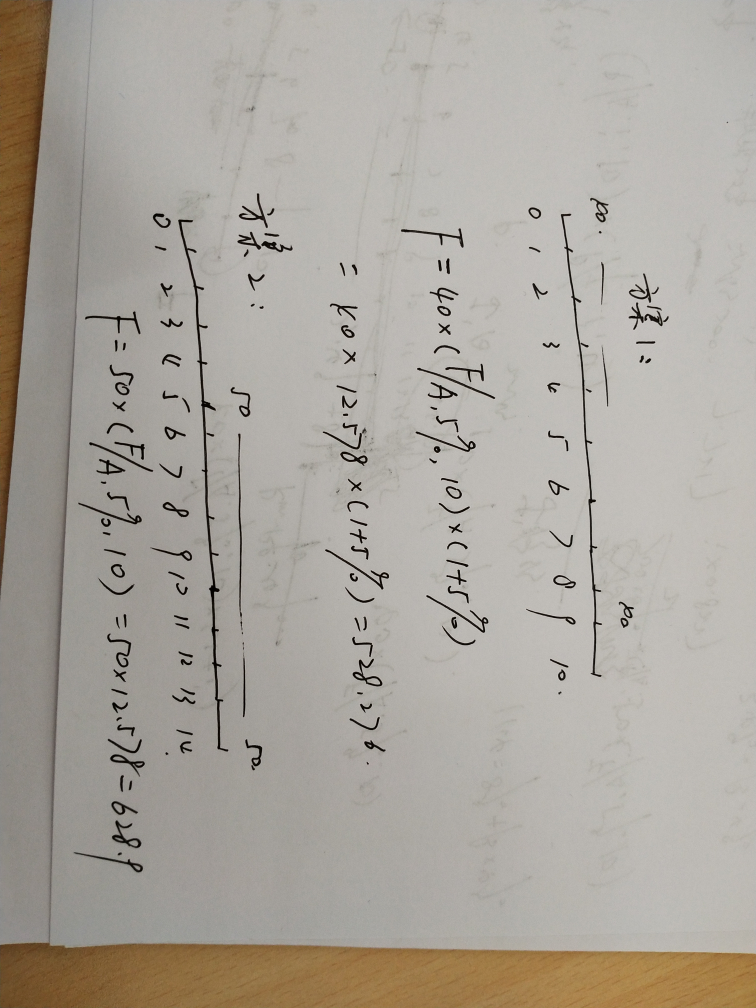 方案1:
40. 40
0 1 2 3 4 5 6 7 8 9 10.
F=40×(F/A,5%,10)×(1+5%)
=40×12.578×(1+5%)=528.276.
方案2:
50 50
0 1 2 3 4 5 6 7 8 9 10 11 12 13 14
F=50×(F/A,5%,10)=50×12.578=628.9